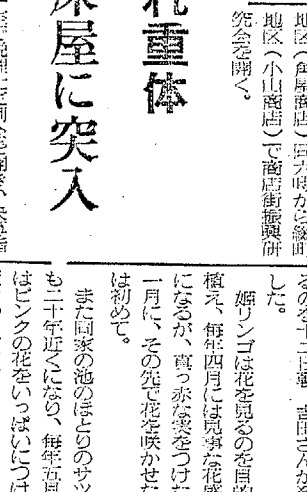 地区（角屋商店）同九時から綾町
地区（小山商店）で商店街振興研
究会を開く。
れ重体
床屋に突入
した。
姫リンゴは花を見るのを目的
植え、毎年四月には見事な花盛
になるが、真っ赤な実をつけた
一月に、その先で花を咲かせた
は初めて。
また同家の池のほとりのサツ
も二十年近くになり、毎年五月
はピンクの花をいっぱいにつけ